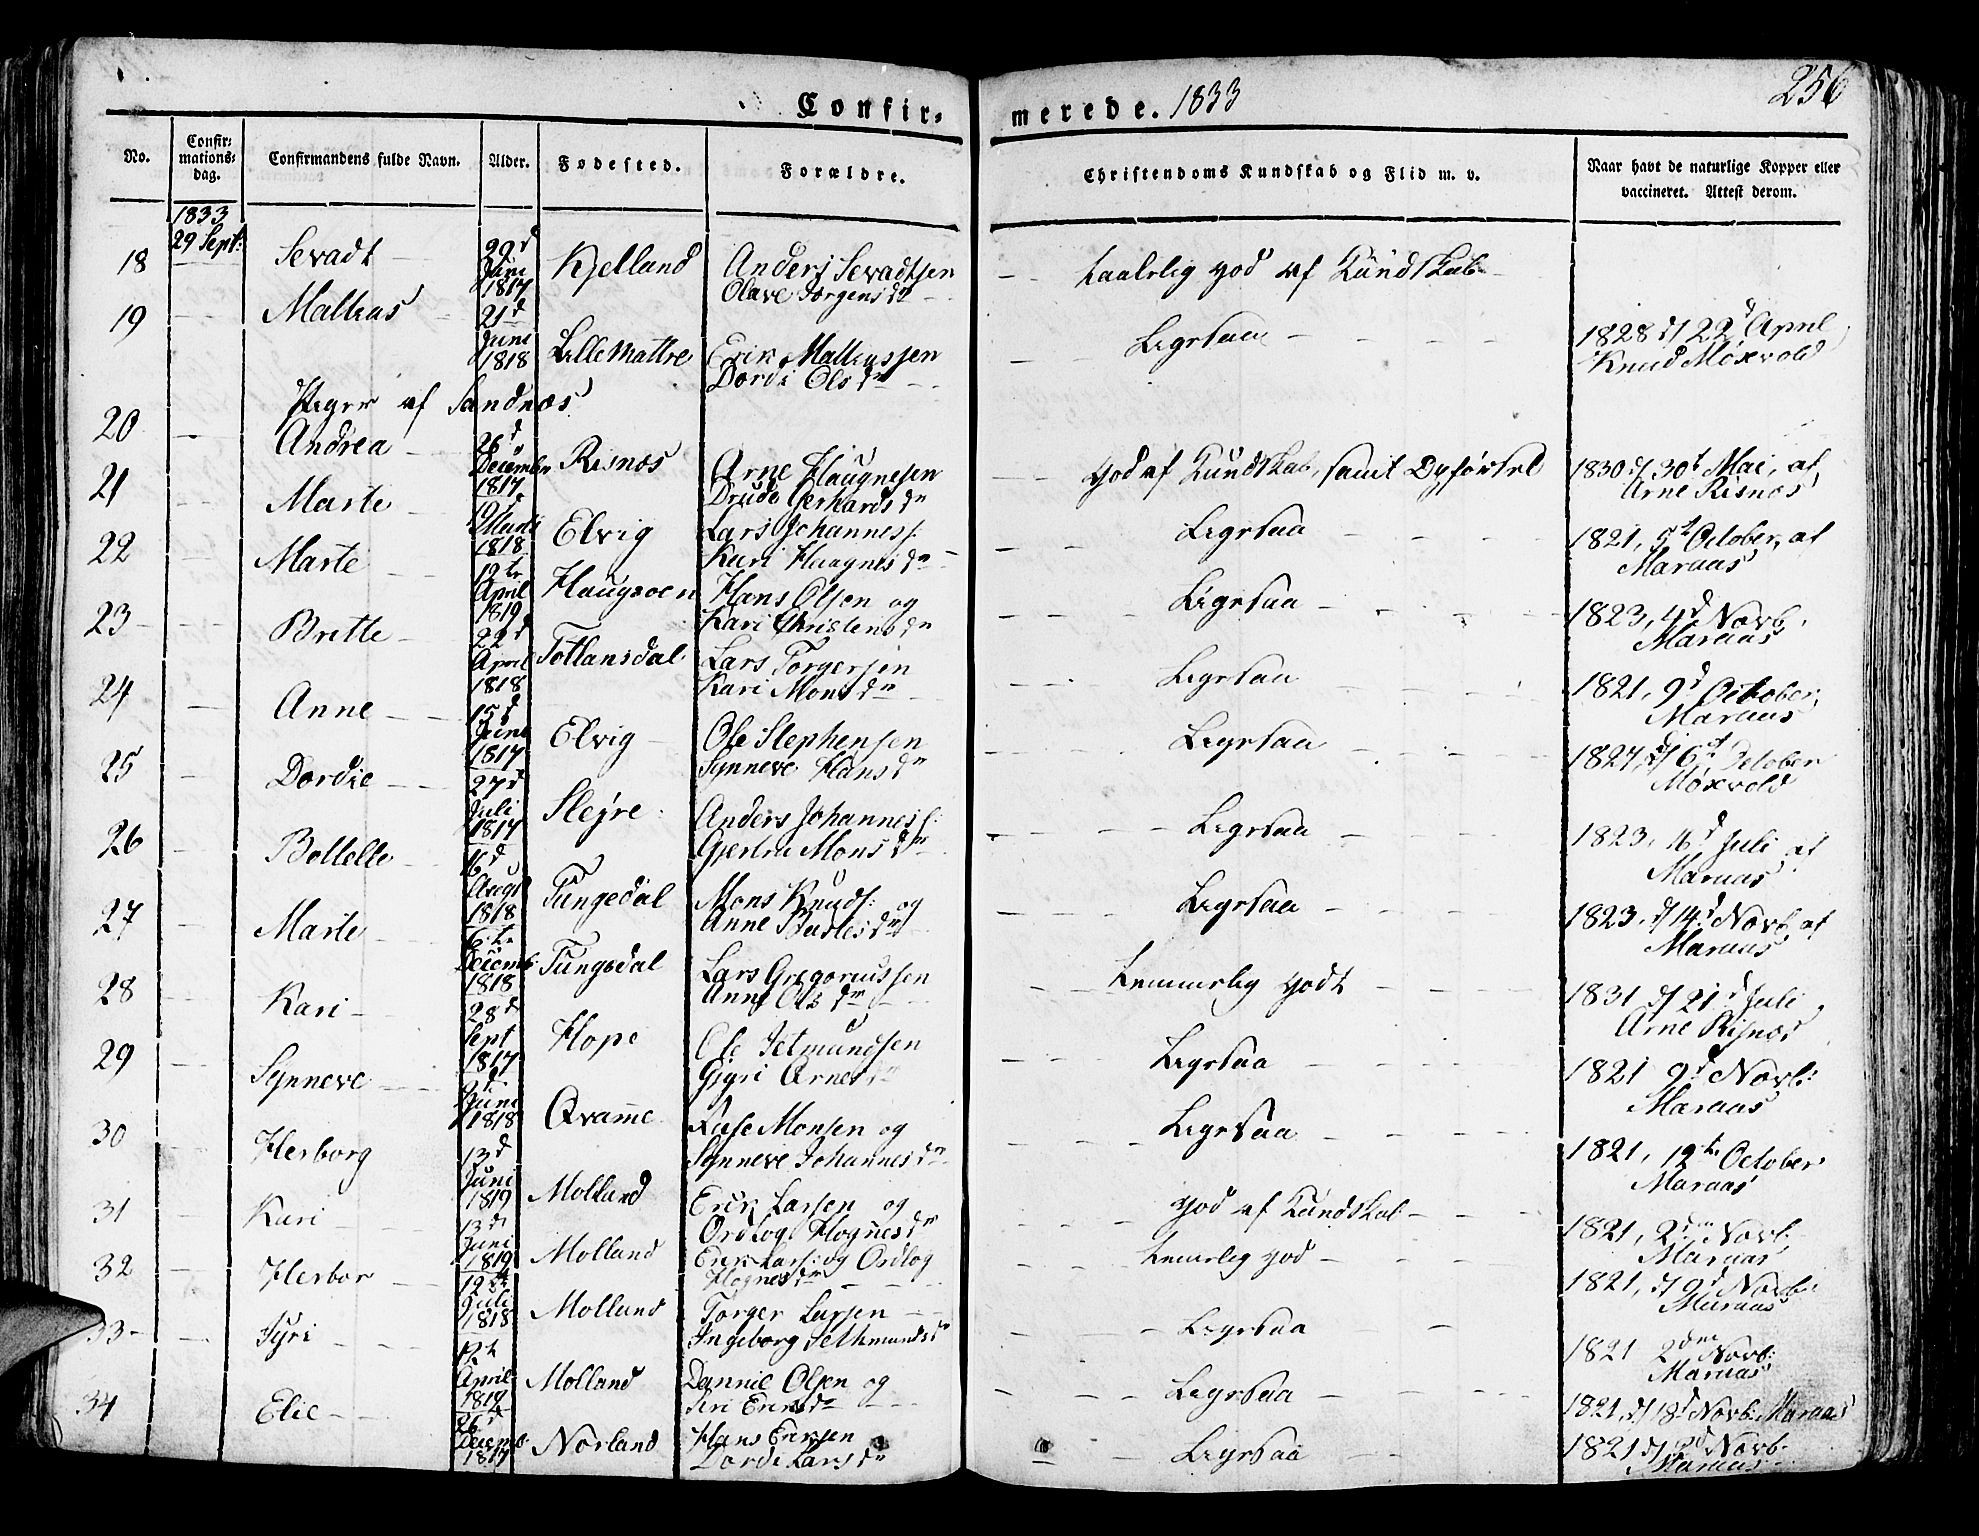 256
Confir- merede. 1833
No. Confir-mations-dag. Confirmandens fulde Navn. Alder. Fødested. Forældre. Christendoms Kundskab og Flid m. v. Naar havt de naturlige Kopper eller vaccineret. Attest derom.
1833
29 Sept:
18 Sevadt Juni 1817 Kjelland Anders Sevadtsen
Olave Jørgensdr taalelig god af Kundskab
19 Mathias 21d Juni 1818 Lille Mattre Erik Mathiassen
Dordi Olsdr Ligesaa 1828 d/ 22d April
Knud Møxvold
Piger af Sandnæs
20 Andrea 26d Decembr 1817 Risnæs Arne Haugnesen
Drude Gerhardsdr god af Kundskab, samt Opførsel 1830 d/ 30t Mai, af
Arne Risnæs
21 Marte 1818 Elvig Lars Johanness:
Kari Haagnesdr Ligesaa 1821, 9d October, af
Maraas
22 Marte April 1819 Haugsoen Hans Olsen og
Kari Christensdr Ligesaa 1823, 4d Novb.
Maraas
23 Britte 22d April 1818 Totlansdal Lars Torgersen
Kari Monsdr Ligesaa 1821, 9d October,
Maraas
24 Anne 15d Juni 1817 Elvig Ole Stephensen
Synneve Hansdr Ligesaa 1827, d/ 6t October
Møxvold
25 Dordie 27d Juli 1817 Slejre Anders Johanness:
Gjertru Monsdr Ligesaa 1823, 16d Juli af
Maraas
26 Bottelle 16d Augst 1818 Tungedal Mons Knuds: og
Anne Ligesaa 1823, d/ 14d Novb, af
Maraas
27 Marte 6te Decemb 1818 Tungedal Lars Gregoriussen
Anne Olsdr temmelig godt 1831 d/ 21d Juli
Arne Risnæs
28 Kari 28d Sept 1817 Hope Ole Setmundsen
Gyri Arnesdr Ligesaa 1821 9d Novb:
Maraas
29 Synneve Juni 1818 Qvamme Monsen og
Synneve Johannesdr Ligesaa 1821, 12te October
Maraas
30 Herborg 13d Juni 1819 Molland Erik Larsen og
Ordlog Hognesdr god af Kundskab 1821, 2den Novb.
Maraas
31 Kari 13d Juni 1819 Molland Erik Lars: og Ordlog
Hognesdr temelig god 1821, d/ 9d Novb:
Maraas
32 Herbor Juli 1818 Molland Torger Larsen
Ingeborg Sethmundsdr Ligesaa 1821 2den Novb:
Maraas
33 Gyri 12te April Molland Dannil Olsen og
Siri Eriksdr Ligesaa 1821, d/ 18d Novb: Maraas
34 Elie 26d Decemb 1817 Norland Hans Eriksen
Dordi Larsdr Ligesaa 1821 d/ Novb.
Maraas